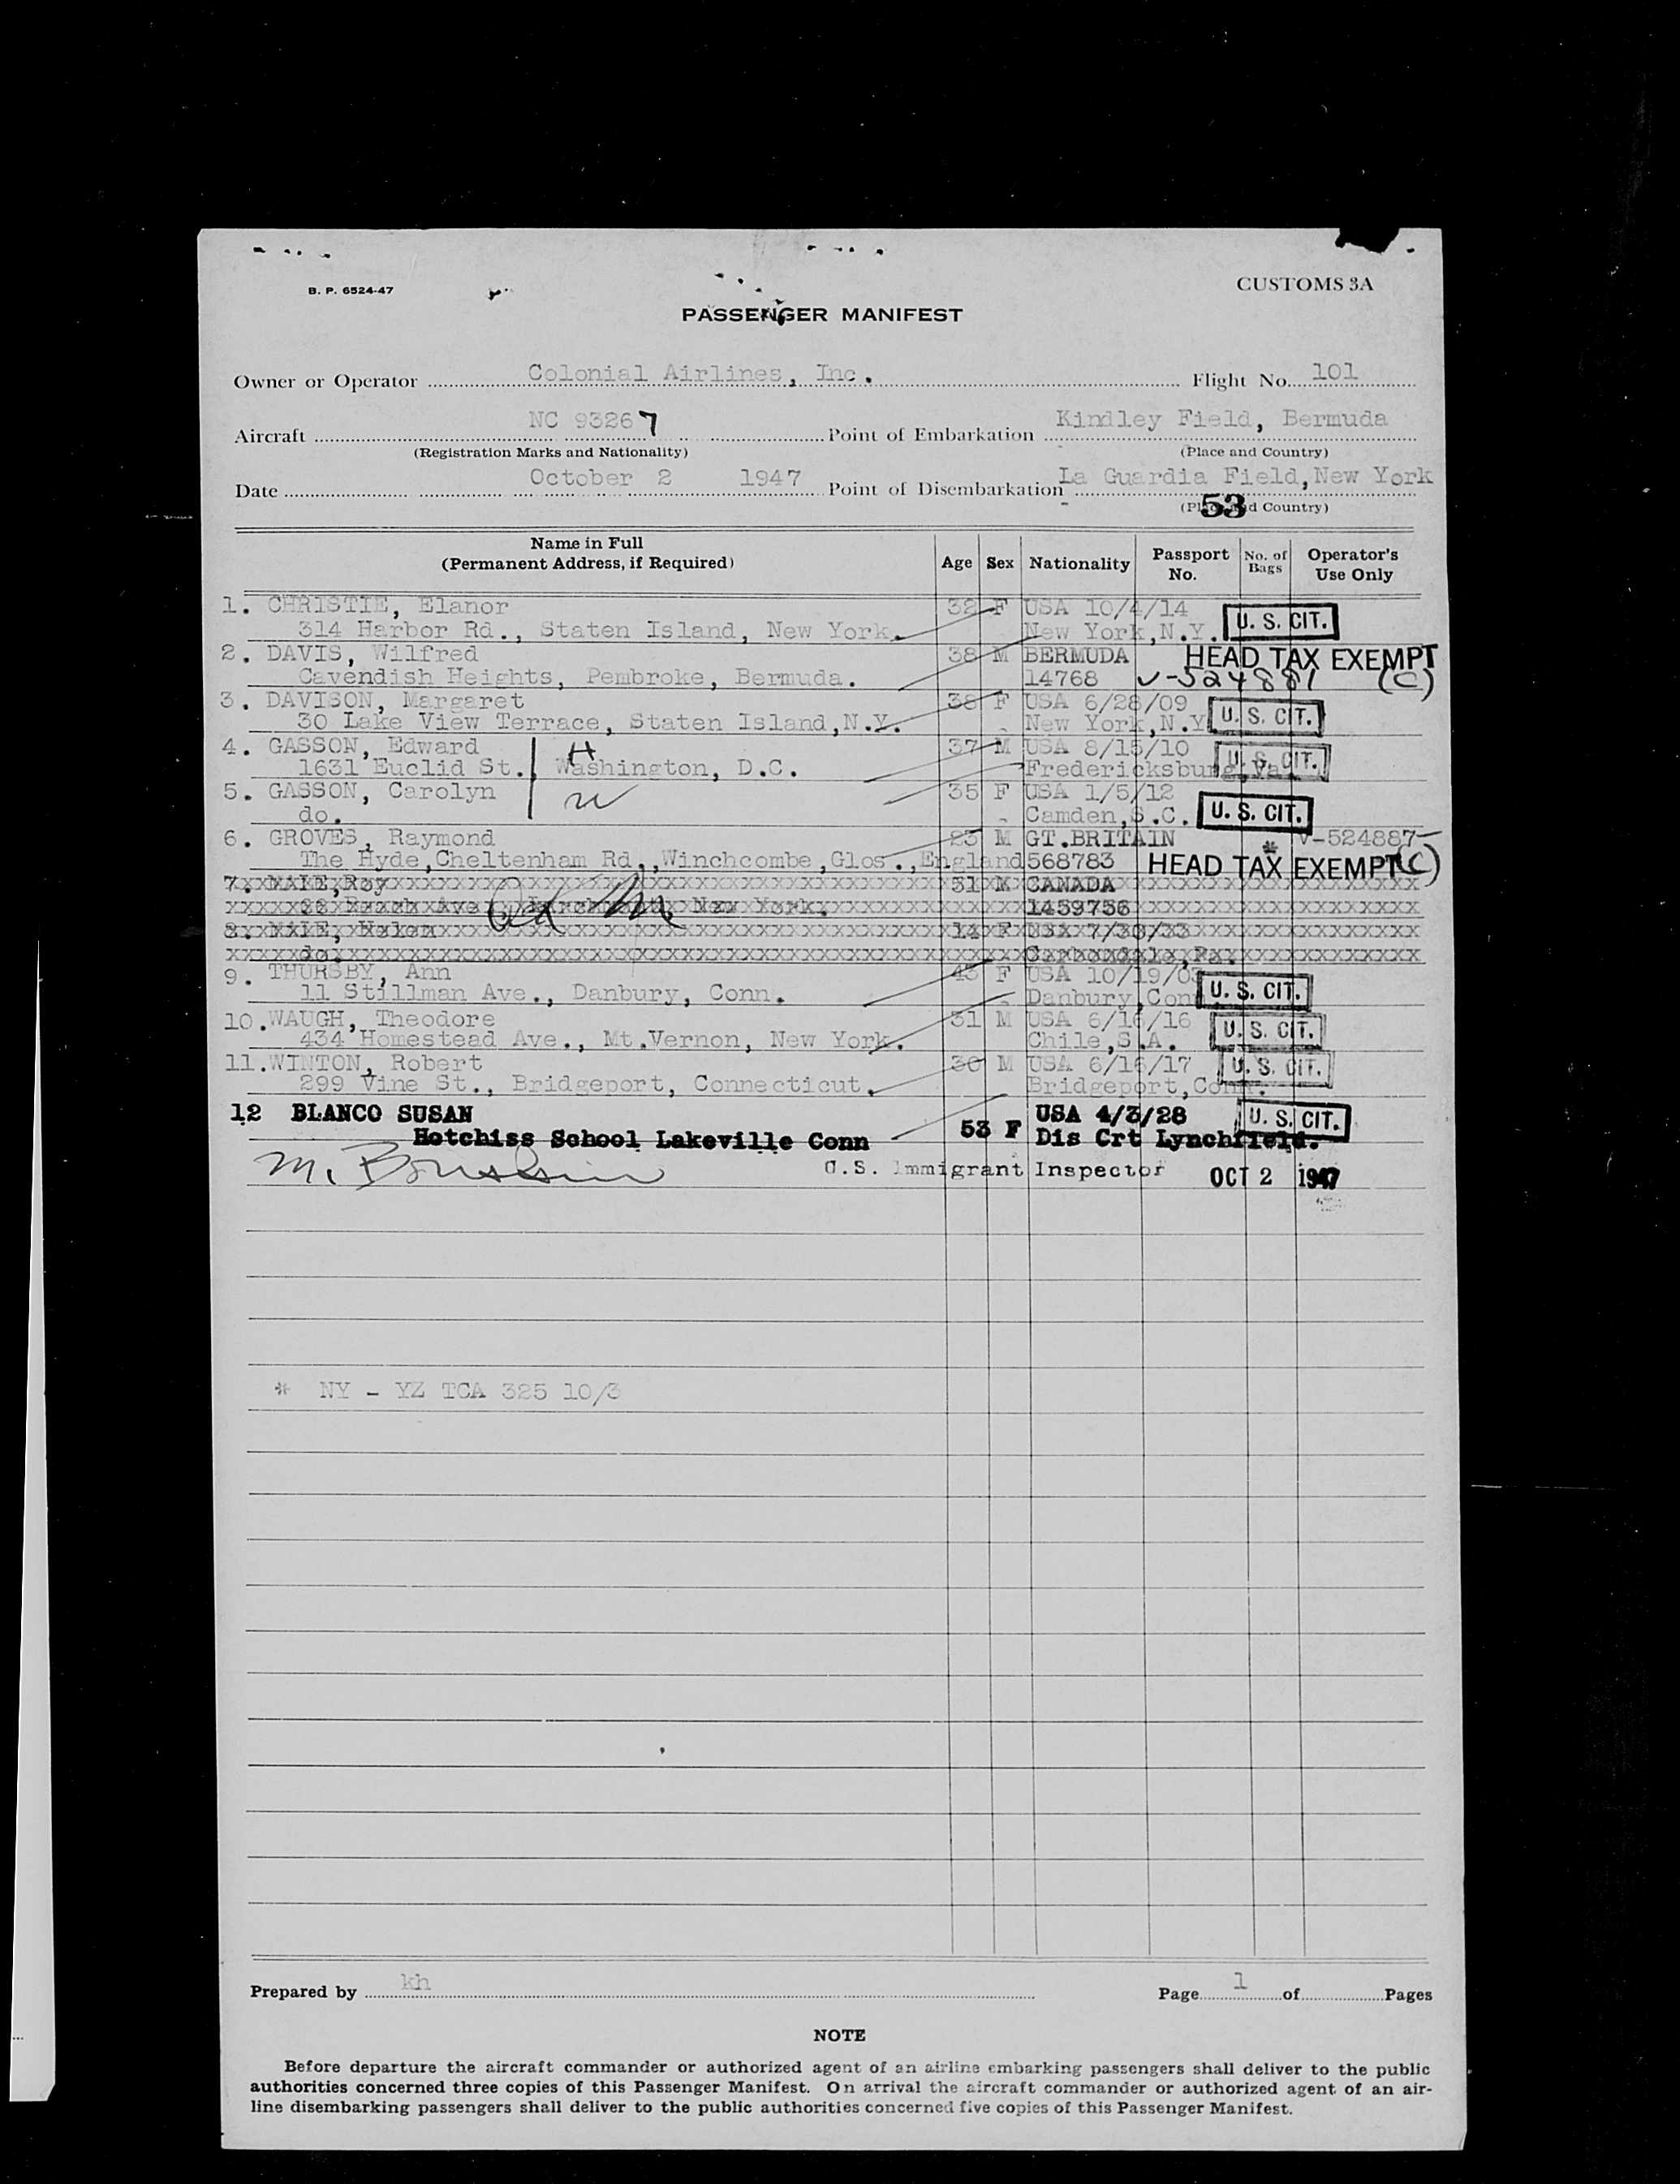 B. P. 6524-47
CUSTOMS 3A
PASSENGER MANIFEST
Owner or Operator Colonial Airlines, Inc. Flight No. 101
Aircraft NC 93267 Point of Embarkation Kindley Field, Bermuda
(Registration Marks and Nationality) (Place and Country)
Date October 2 1947 Point of Disembarkation La Guardia Field, New York
53 (Place and Country)
Name in Full (Permanent Address, if Required) Age Sex Nationality Passport No. No. of Bags Operator's Use Only
1. CHRISTIE, Elanor 32 F USA 10/4/14
314 Harbor Rd., Staten Island, New York. New York, N.Y. U. S. CIT.
2. DAVIS, Wilfred 38 M BERMUDA HEAD TAX EXEMPT
Cavendish Heights, Pembroke, Bermuda. 14768 V-524881 (C)
3. DAVISON, Margaret 38 F USA 6/28/09
30 Lake View Terrace, Staten Island, N.Y. New York, N.Y. U. S. CIT.
4. GASSON, Edward H 37 M USA 8/15/10
1631 Euclid St., Washington, D.C. Fredericksburg, Va. U. S. CIT.
5. GASSON, Carolyn W 35 F USA 1/5/12
do. Camden, S.C. U. S. CIT.
6. GROVES, Raymond 23 M GT. BRITAIN * V-524887
The Hyde, Cheltenham Rd., Winchcombe, Glos., England 568783 HEAD TAX EXEMPT (C)
7. MALE, Roy 51 M CANADA
Beach Ave New York. 1459756
8. MALE, Helen 14 F USA 7/30/33
do. Carbondale, Pa.
9. THURSBY, Ann 43 F USA 10/19/03
11 Stillman Ave., Danbury, Conn. Danbury, Conn U. S. CIT.
10. WAUGH, Theodore 31 M USA 6/16/16
434 Homestead Ave., Mt. Vernon, New York. Chile, S.A. U. S. CIT.
11. WINTON, Robert 30 M USA 6/16/17
299 Vine St., Bridgeport, Connecticut. Bridgeport, Conn. U. S. CIT.
12 BLANCO SUSAN 53 F USA 4/3/28 U. S. CIT.
Hotchiss School Lakeville Conn Dis Crt Lynchfield.
U.S. Immigrant Inspector OCT 2 1947
* NY - YZ TCA 325 10/3
Prepared by kh Page 1 of Pages
NOTE
Before departure the aircraft commander or authorized agent of an airline embarking passengers shall deliver to the public
authorities concerned three copies of this Passenger Manifest. On arrival the aircraft commander or authorized agent of an air-
line disembarking passengers shall deliver to the public authorities concerned five copies of this Passenger Manifest.